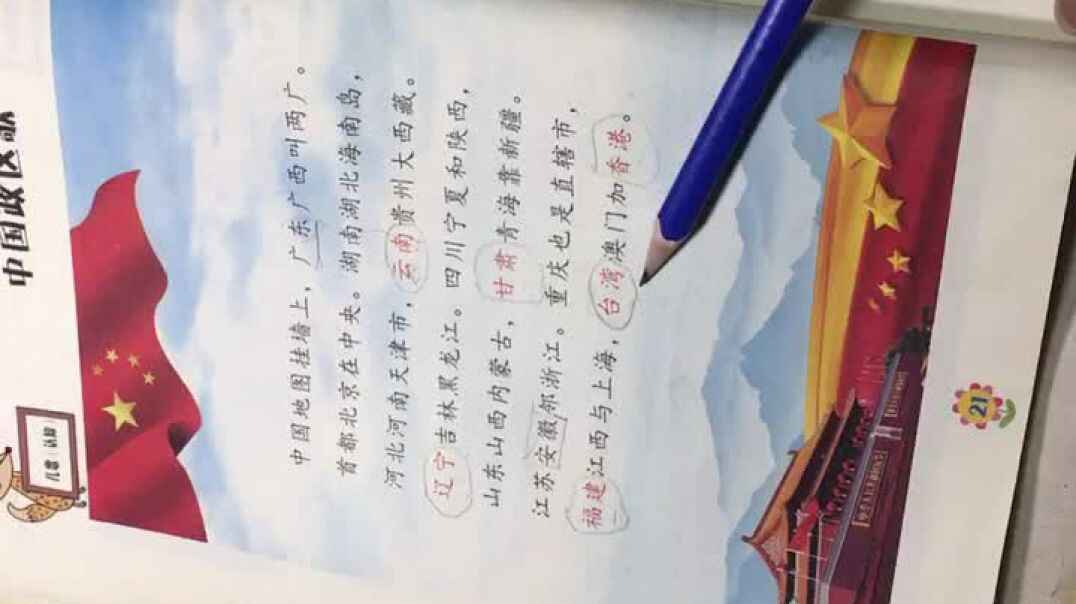 中国政区歌
中国地图挂墙上，广东广西叫两广。
首都北京在中央。湖南湖北海南岛，
河北河南天津市，云南贵州大西藏。
辽宁吉林黑龙江。四川宁夏和陕西，
山东山西内蒙古，甘肃青海靠新疆。
江苏安徽邻浙江。重庆也是直辖市，
福建江西与上海，台湾澳门加香港。
21